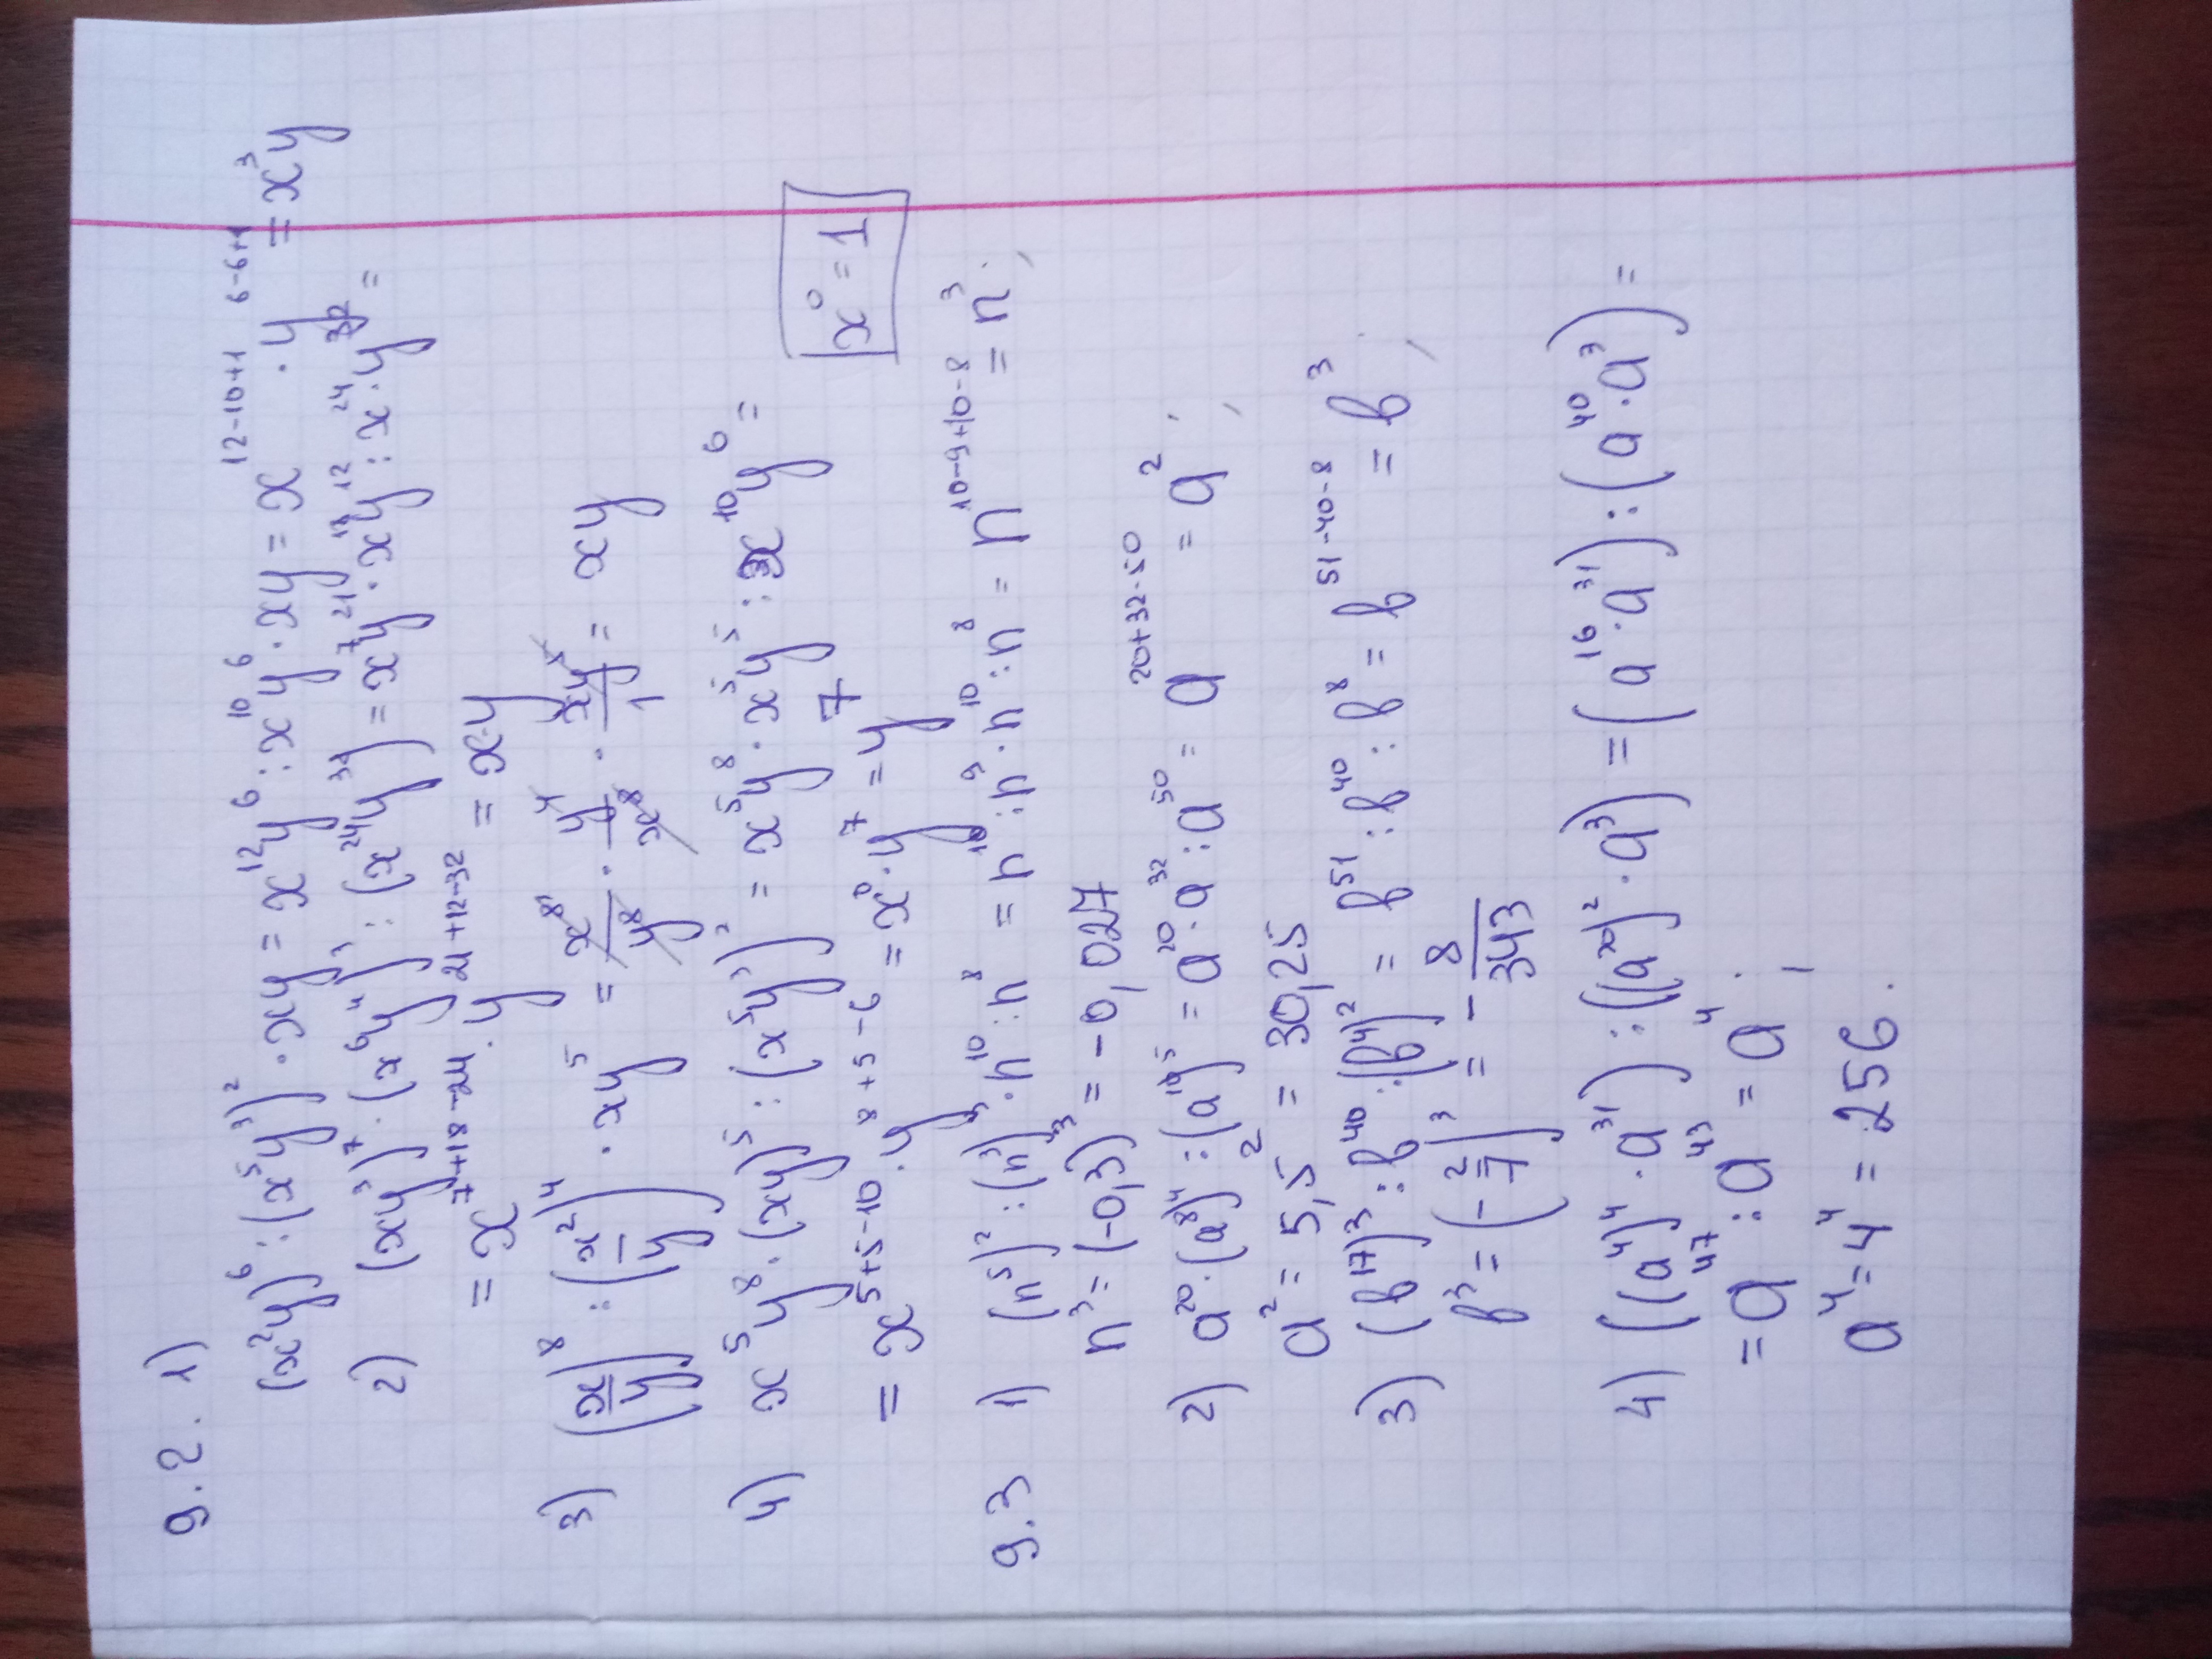 9.2. 1)
(x²y)⁶ : (x⁵y³)² · xy = x¹²y⁶ : x¹⁰y⁶ · xy = x¹²⁻¹⁰⁺¹ · y⁶⁻⁶⁺¹ = x³y
2) (xy³)⁷ · (x⁶y⁴)³ : (x²⁴y³²) = x⁷y²¹ · x¹⁸y¹² : x²⁴ · y³² =
= x⁷⁺¹⁸⁻²⁴ · y²¹⁺¹²⁻³² = x·y
3) (x/y)⁸ : (x²/y)⁴ · xy⁵ = x⁸/y⁸ · y⁴/x⁸ · xy⁵/1 = xy
4) x⁵y⁸ · (xy)⁵ : (x⁵y³)² = x⁵y⁸ · x⁵y⁵ : x¹⁰y⁶ =
= x⁵⁺⁵⁻¹⁰ · y⁸⁺⁵⁻⁶ = x⁰ · y⁷ = y⁷
x⁰ = 1
9.3 1) (n⁵)² : (n³)³ · n¹⁰ : n⁸ = n¹⁰ : n⁹ · n¹⁰ : n⁸ = n¹⁰⁻⁹⁺¹⁰⁻⁸ = n³;
n³ = (-0,3)³ = -0,027
2) a²⁰ · (a⁸)⁴ : (a¹⁰)⁵ = a²⁰ · a³² : a⁵⁰ = a²⁰⁺³²⁻⁵⁰ = a²;
a² = 5,5² = 30,25
3) (b¹⁷)³ : b⁴⁰ : (b⁴)² = b⁵¹ : b⁴⁰ : b⁸ = b⁵¹⁻⁴⁰⁻⁸ = b³;
b³ = (-2/7)³ = -8/343
4) ((a⁴)⁴ · a³¹) : ((a²⁰)² · a³) = (a¹⁶ · a³¹) : (a⁴⁰ · a³) =
= a⁴⁷ : a⁴³ = a⁴;
a⁴ = 4⁴ = 256.